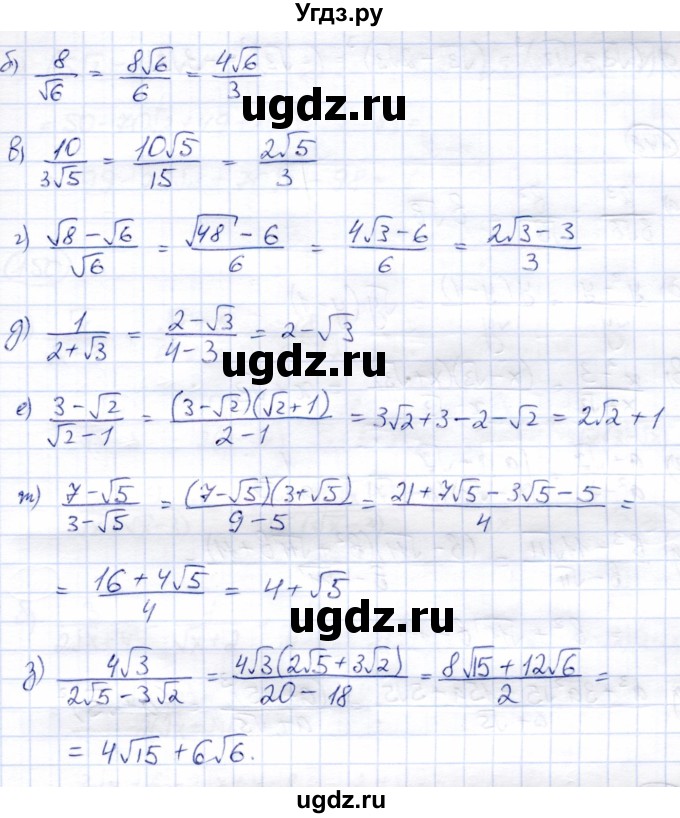 Угдз.ру
б) 8/√6 = 8√6/6 = 4√6/3
ugdz.ru
в) 10/3√5 = 10√5/15 = 2√5/3
г) (√8 − √6)/√6 = (√48 − 6)/6 = (4√3 − 6)/6 = (2√3 − 3)/3
д) 1/(2+√3) = (2−√3)/(4−3) = 2−√3
ugdz.ru
е) (3−√2)/(√2−1) = (3−√2)(√2+1)/(2−1) = 3√2+3−2−√2 = 2√2+1
ж) (7−√5)/(3−√5) = (7−√5)(3+√5)/(9−5) = (21+7√5−3√5−5)/4 =
= (16+4√5)/4 = 4+√5
ugdz.ru
з) 4√3/(2√5−3√2) = 4√3(2√5+3√2)/(20−18) = (8√15+12√6)/2 =
= 4√15 + 6√6.
ugdz.ru